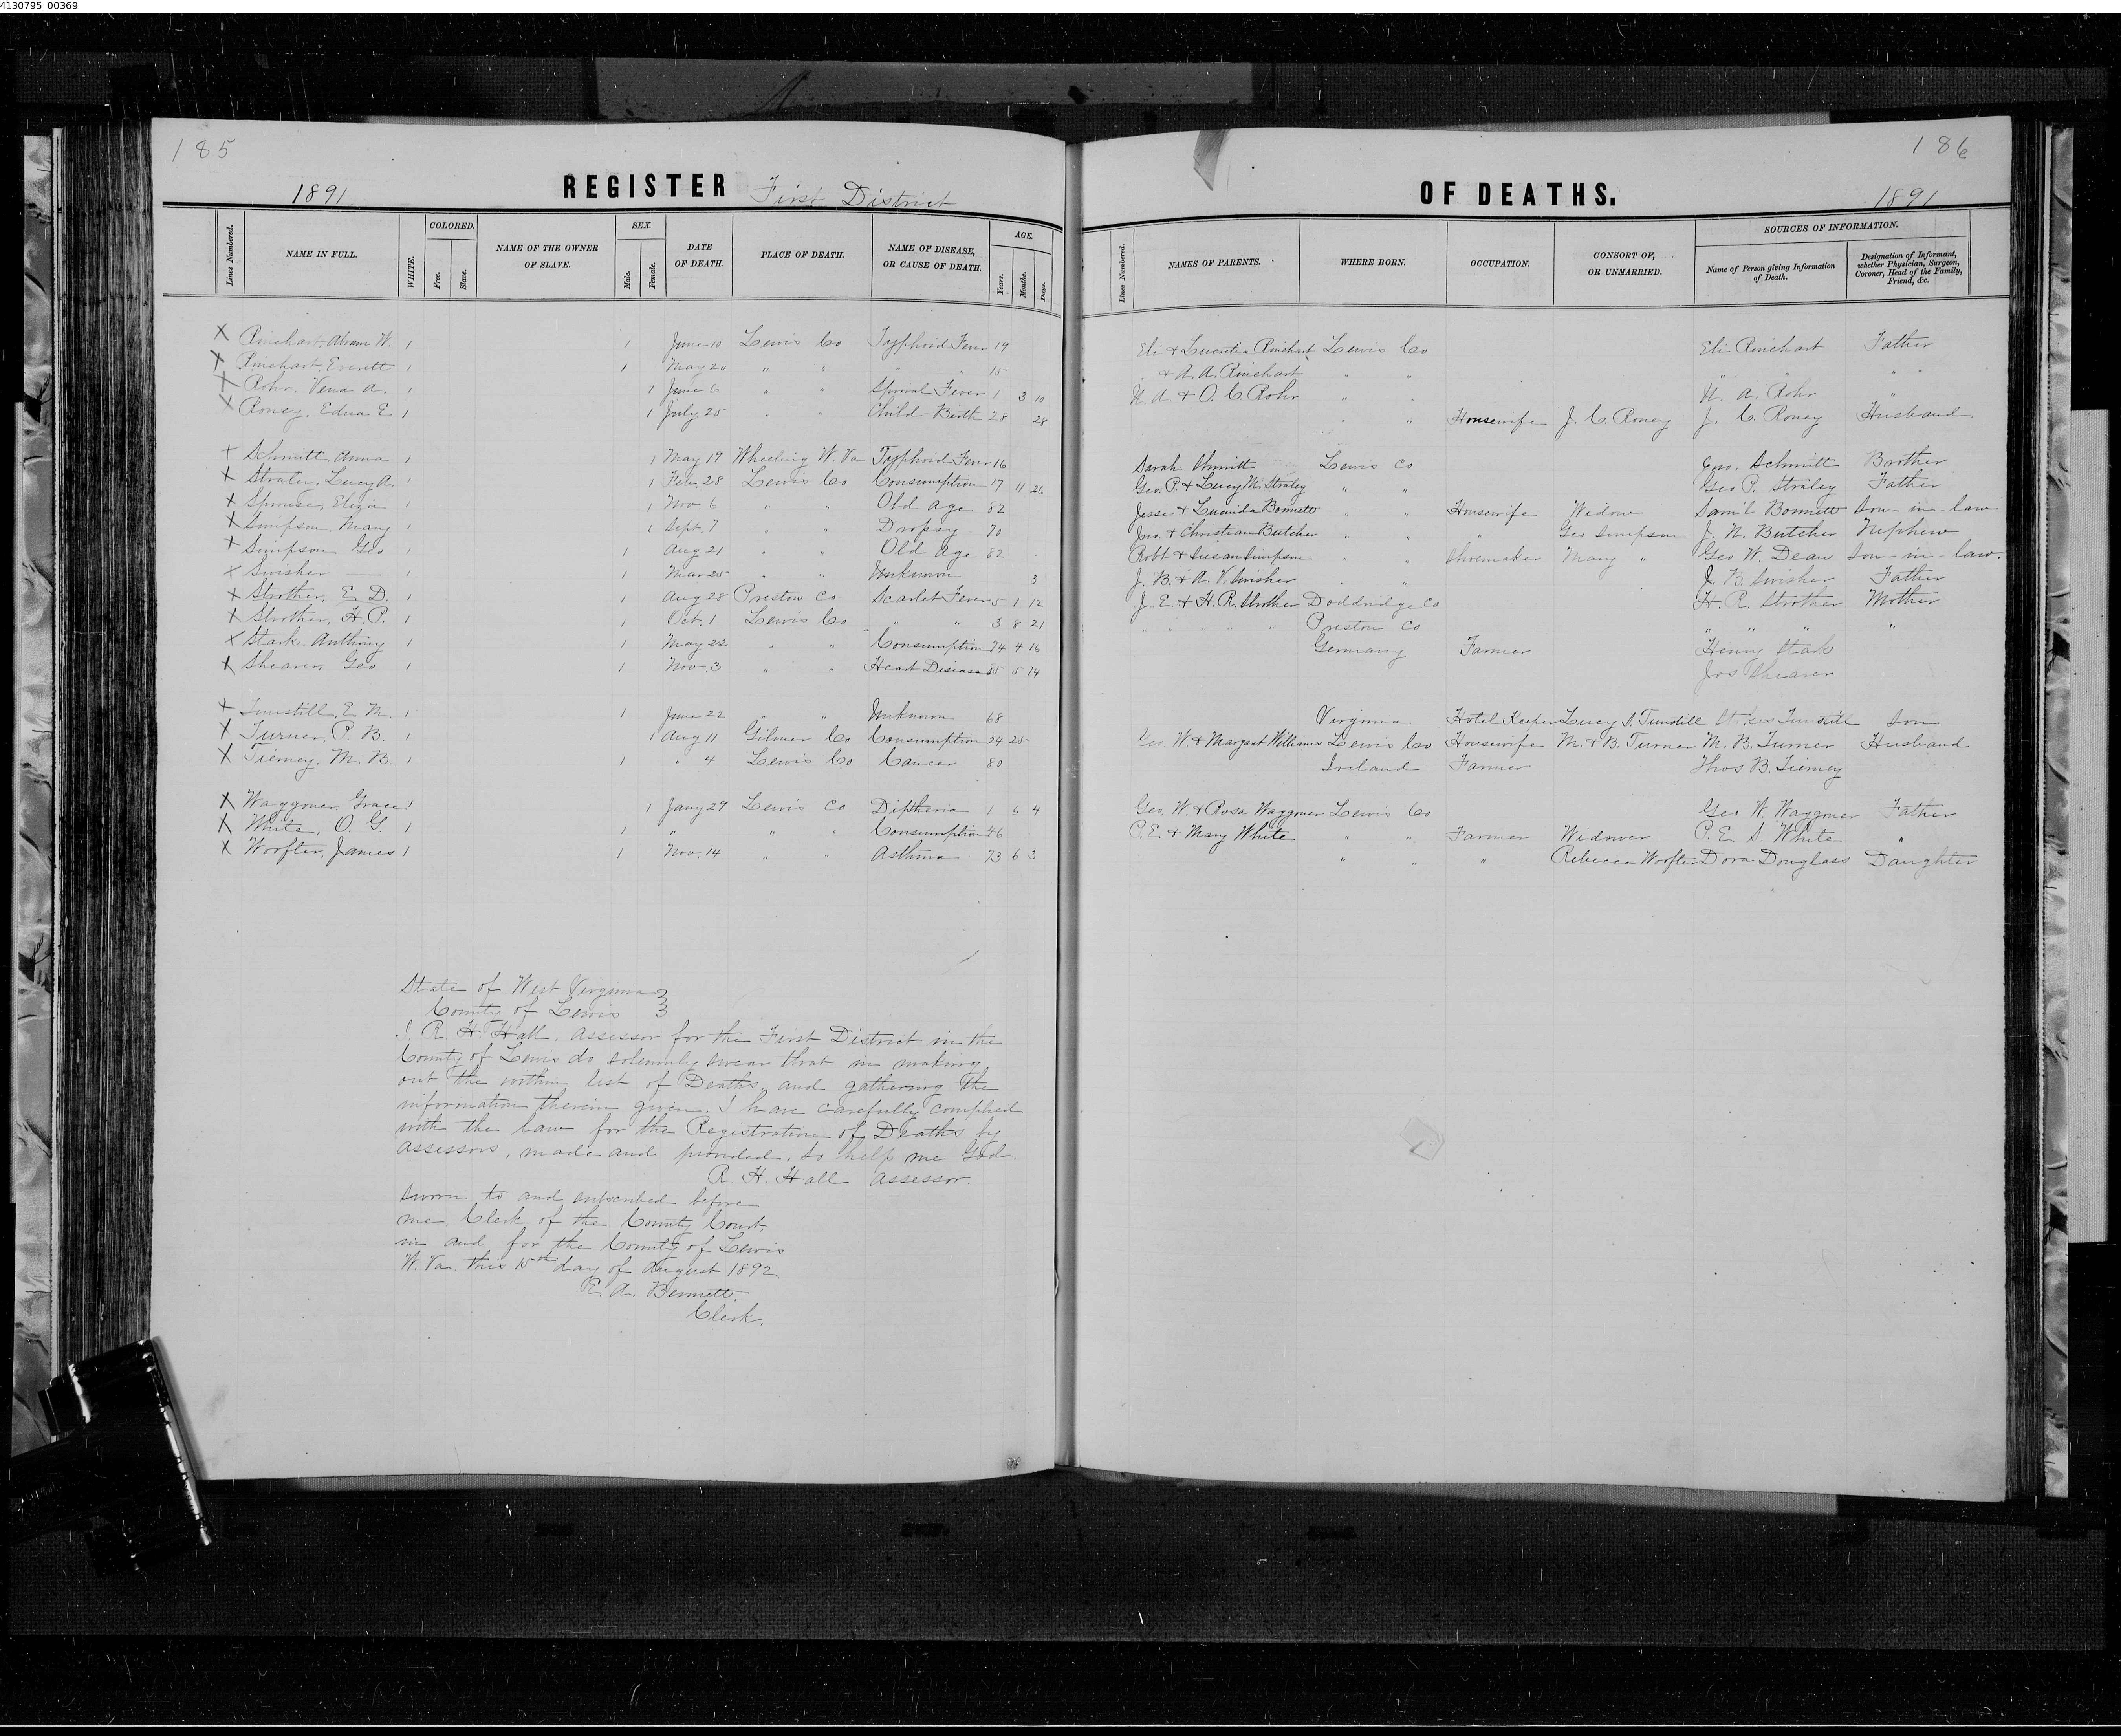 4130795_00369
185
1891 REGISTER First District
Lines Numbered. NAME IN FULL. WHITE. COLORED. Free. Slave. NAME OF THE OWNER OF SLAVE. SEX. Male. Female. DATE OF DEATH. PLACE OF DEATH. NAME OF DISEASE, OR CAUSE OF DEATH. AGE. Years. Months. Days.
X Rinehart, Abram W. 1 1 June 10 Lewis Co Typhoid Fever 19
X Rinehart, Everett 1 1 May 20 " " " " 15
X Rohr, Vena A. 1 1 June 6 " " Spinal Fever 1 3 10
X Roney, Edna E 1 1 July 25 " " Child-Birth 28 28
X Schmitt, Anna 1 1 May 19 Wheeling W. Va Typhoid Fever 16
X Straley, Lucy A. 1 1 Feb. 28 Lewis Co Consumption 17 11 26
X Sprouse, Eliza 1 1 Nov. 6 " " Old Age 82
X Simpson, Mary 1 1 Sept. 7 " " Dropsy 70
X Simpson, Geo 1 1 Aug 21 " " Old Age 82
X Swisher — 1 1 Mar 25 " " Unknown 3
X Strother, E. D. 1 1 Aug 28 Preston Co Scarlet Fever 5 1 12
X Strother, H. P. 1 1 Oct. 1 Lewis Co " " 3 8 21
X Stark, Anthony 1 1 May 22 " " Consumption 74 4 16
X Shearer, Geo 1 1 Nov. 3 " " Heart Disease 85 5 14
X Tunstill, E. M. 1 1 June 22 " " Unknown 68
X Turner, P. B. 1 1 Aug 11 Gilmer Co Consumption 24 25
X Tierney, M. B. 1 1 " 4 Lewis Co Cancer 80
X Waggoner, Grace 1 1 Jany 29 Lewis Co Diptheria 1 6 4
X White, O. G. 1 1 " " " Consumption 46
X Woofter, James 1 1 Nov. 14 " " Asthma 73 6 3
State of West Virginia
County of Lewis
I R. H. Hall, assessor for the First District in the
County of Lewis do solemnly swear that in making
out the within list of Deaths, and gathering the
information therein given. I have carefully complied
with the law for the Registration of Deaths by
assessors, made and provided, so help me God.
R. H. Hall Assessor.
Sworn to and subscribed before
me Clerk of the County Court,
in and for the County of Lewis
W. Va. this 15th day of August 1892
Bennett
Clerk.
186
OF DEATHS. 1891
Lines Numbered. NAMES OF PARENTS. WHERE BORN. OCCUPATION. CONSORT OF, OR UNMARRIED. SOURCES OF INFORMATION. Name of Person giving Information of Death. Designation of Informant, whether Physician, Surgeon, Coroner, Head of the Family, Friend, &c.
Eli & Lucretia Rinehart Lewis Co Eli Rinehart Father
" & A. A. Rinehart " " " " " "
& O. C. Rohr " " A. Rohr "
" " Housewife J. C. Roney J. C. Roney Husband
Sarah Schmitt Lewis Co Geo. Schmitt Brother
Geo. P. & Lucy M. Straley " " Geo P. Straley Father
Jesse & Lucinda Bonnett " " Housewife Widow Sam'l Bonnett Son-in-law
Jno. & Christian Butcher " " " Geo Simpson J. N. Butcher Nephew
Robt & Susan Simpson " " Shoemaker Mary " Geo W. Dean Son-in-law.
J. B. & A. V. Swisher " " J. B. Swisher Father
J. E. & H. R. Strother Doddridge Co H. R. Strother Mother
" " " " " Preston Co " " " "
Germany Farmer Henry Stark
Jos Shearer
Virginia Hotel Keeper Lucy S. Tunstill Tunstill Son
Geo. W. & Margaret Williams Lewis Co Housewife M. B. Turner M. B. Turner Husband
Ireland Farmer Thos B. Tierney
Geo. W. & Rosa Waggoner Lewis Co Geo W. Waggoner Father
P. E. & Mary White " " Farmer Widower P. E. S White "
" " " Rebecca Woofter Dora Douglass Daughter